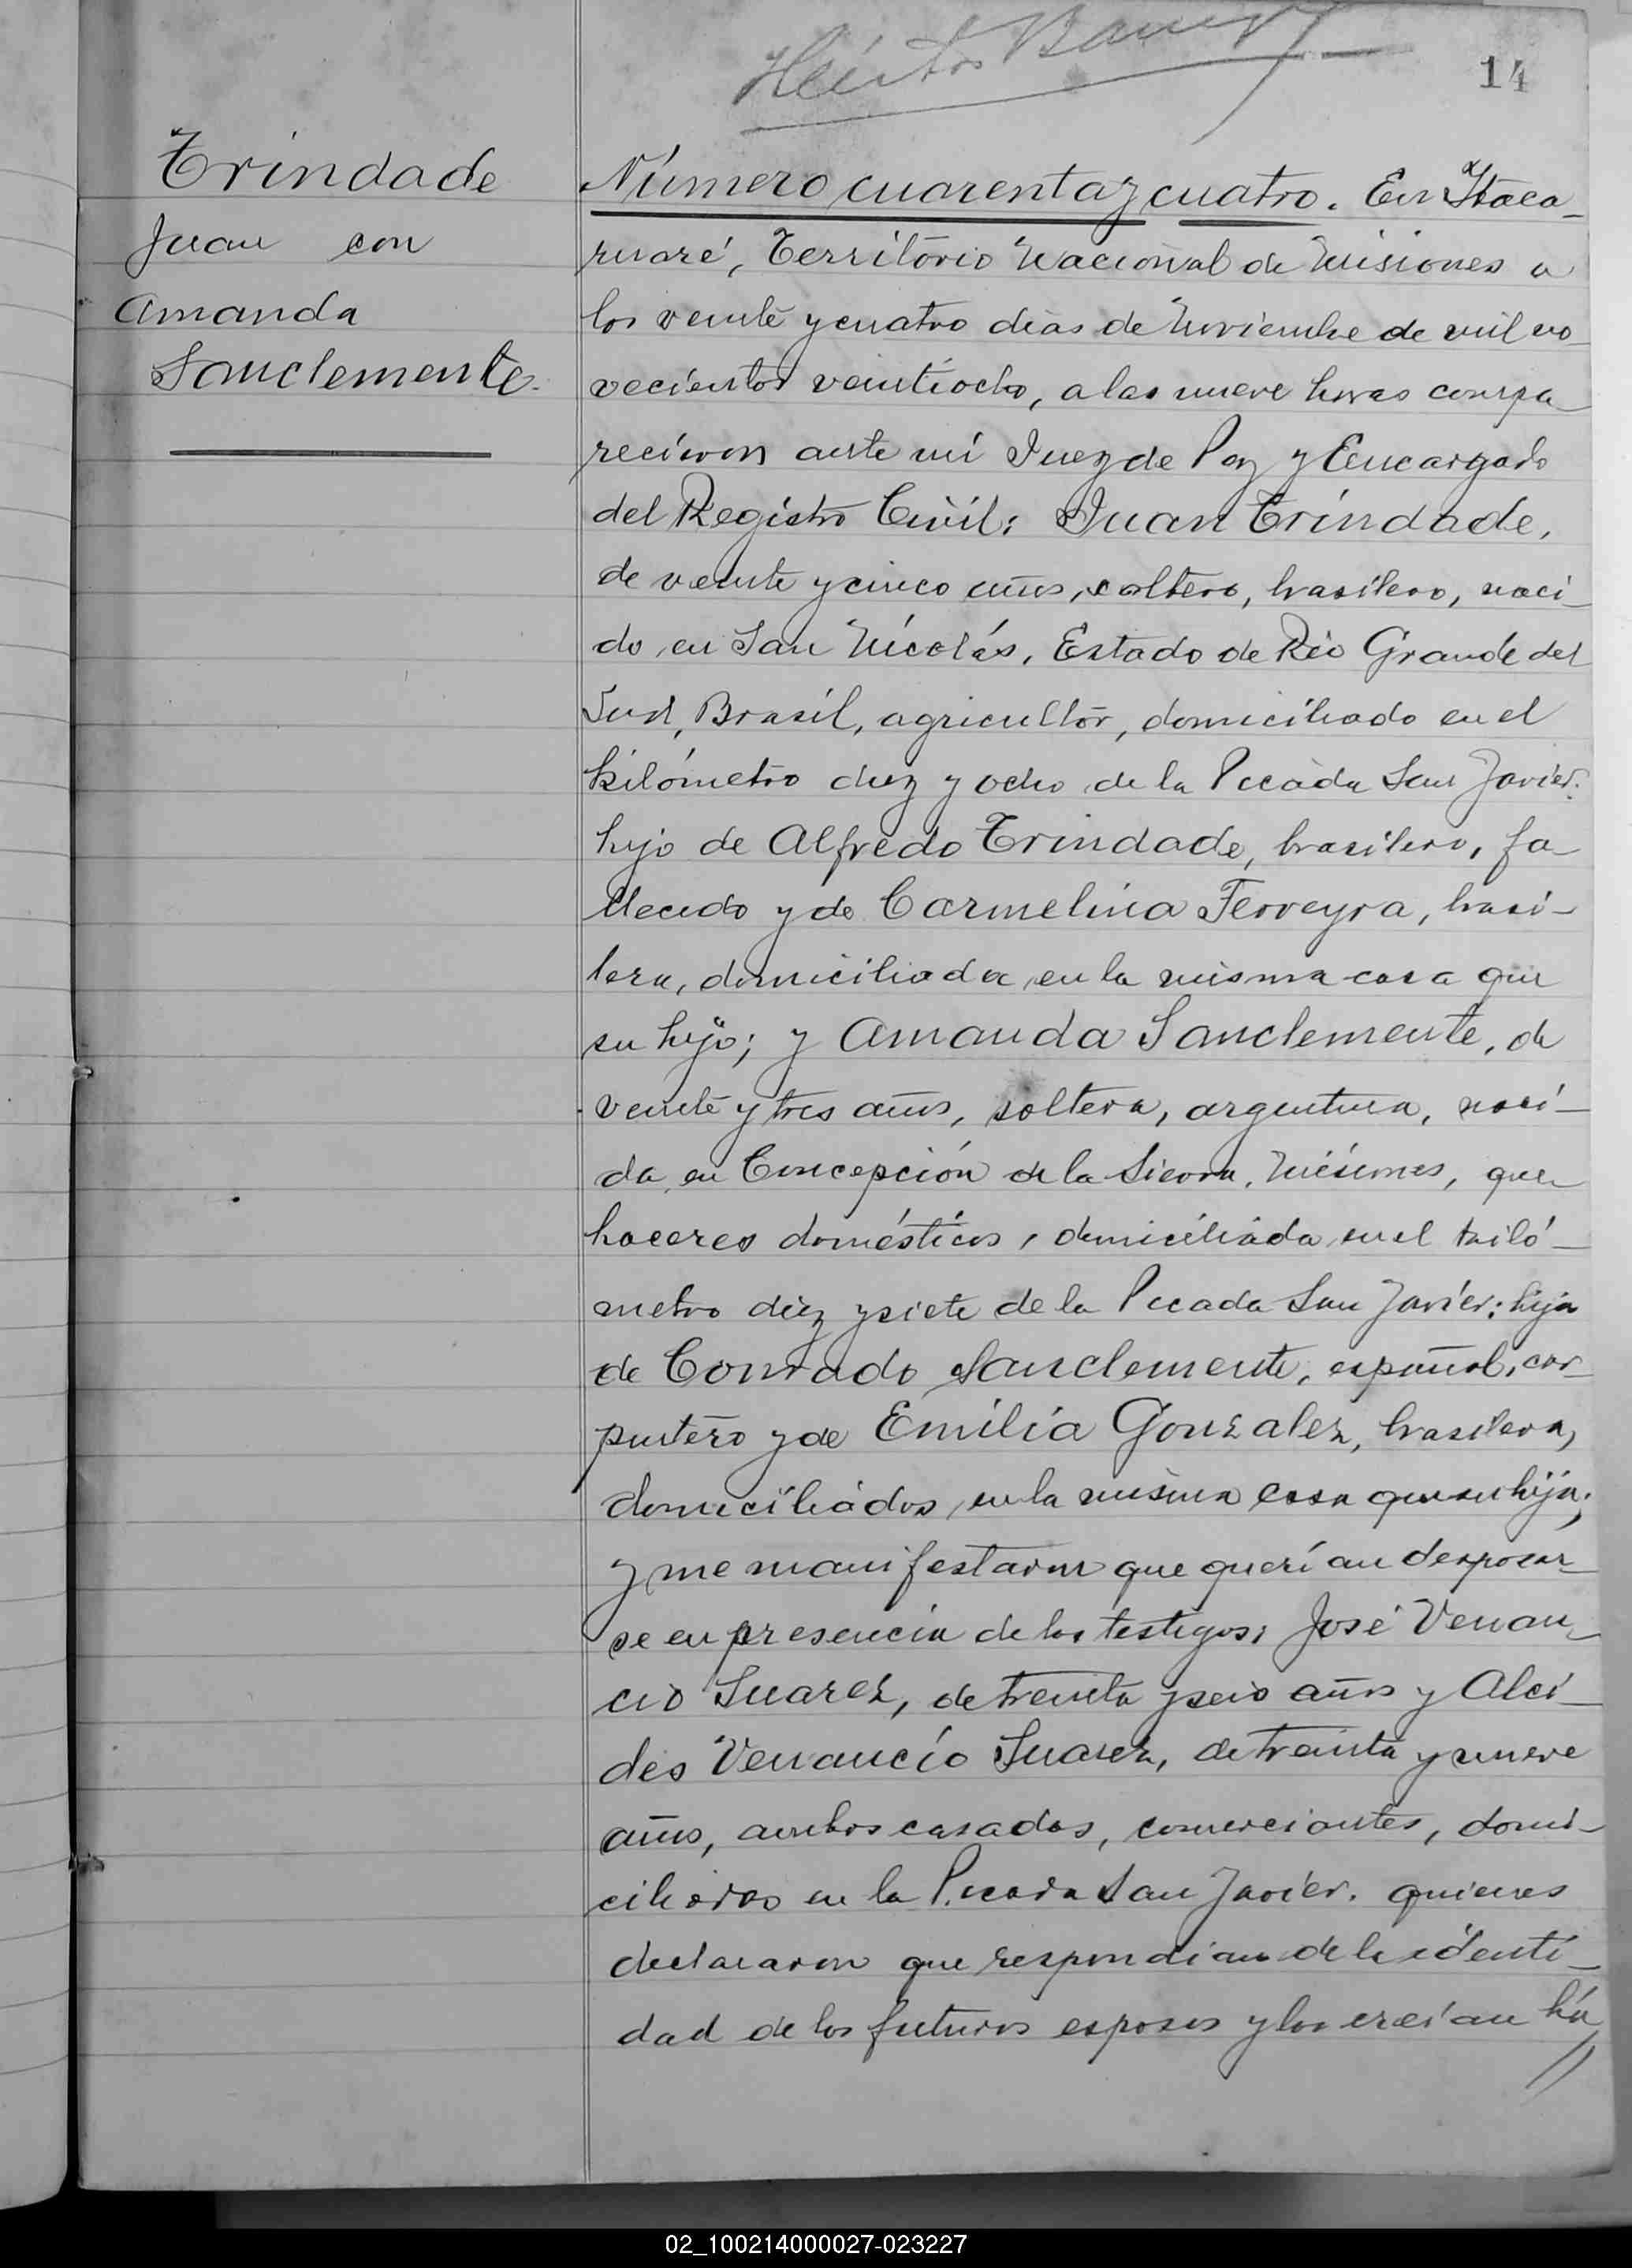 Héctor
14
Trindade
Juan con
Amanda
Sanclemente.
Número cuarenta y cuatro. En Itaca-
ruaré, Territorio Nacional de Misiones a
los veinte y cuatro días de Noviembre de mil no
vecientos veintiocho, a las nueve horas compa-
recieron ante mi Juez de Paz y Encargado
del Registro Civil: Juan Trindade,
de veinte y cinco años, soltero, brasilero, naci-
do en San Nicolás, Estado de Río Grande del
Sud, Brasil, agricultor, domiciliado en el
kilómetro diez y ocho de la Picada San Javier:
hijo de Alfredo Trindade, brasilero, fa-
llecido y de Carmelina Ferreyra, brasi-
lera, domiciliada en la misma casa que
su hijo; y Amanda Sanclemente, de
veinte y tres años, soltera, argentina, naci-
da en Concepción de la Sierra, Misiones, que-
haceres domésticos, domiciliada en el kiló-
metro diez y siete de la Picada San Javier: hija
de Conrado Sanclemente, español, car-
pintero y de Emilia Gonzalez, brasilera,
domiciliados en la misma casa que su hija;
y me manifestaron que querían desposar-
se en presencia de los testigos: José Venan-
cio Suarez, de treinta y seis años y Alci-
des Venancio Suarez, de treinta y nueve
años, ambos casados, comerciantes, domi-
ciliados en la Picada San Javier. quienes
declararon que respondían de la identi-
dad de los futuros esposos y los creían há
//
02_100214000027-023227